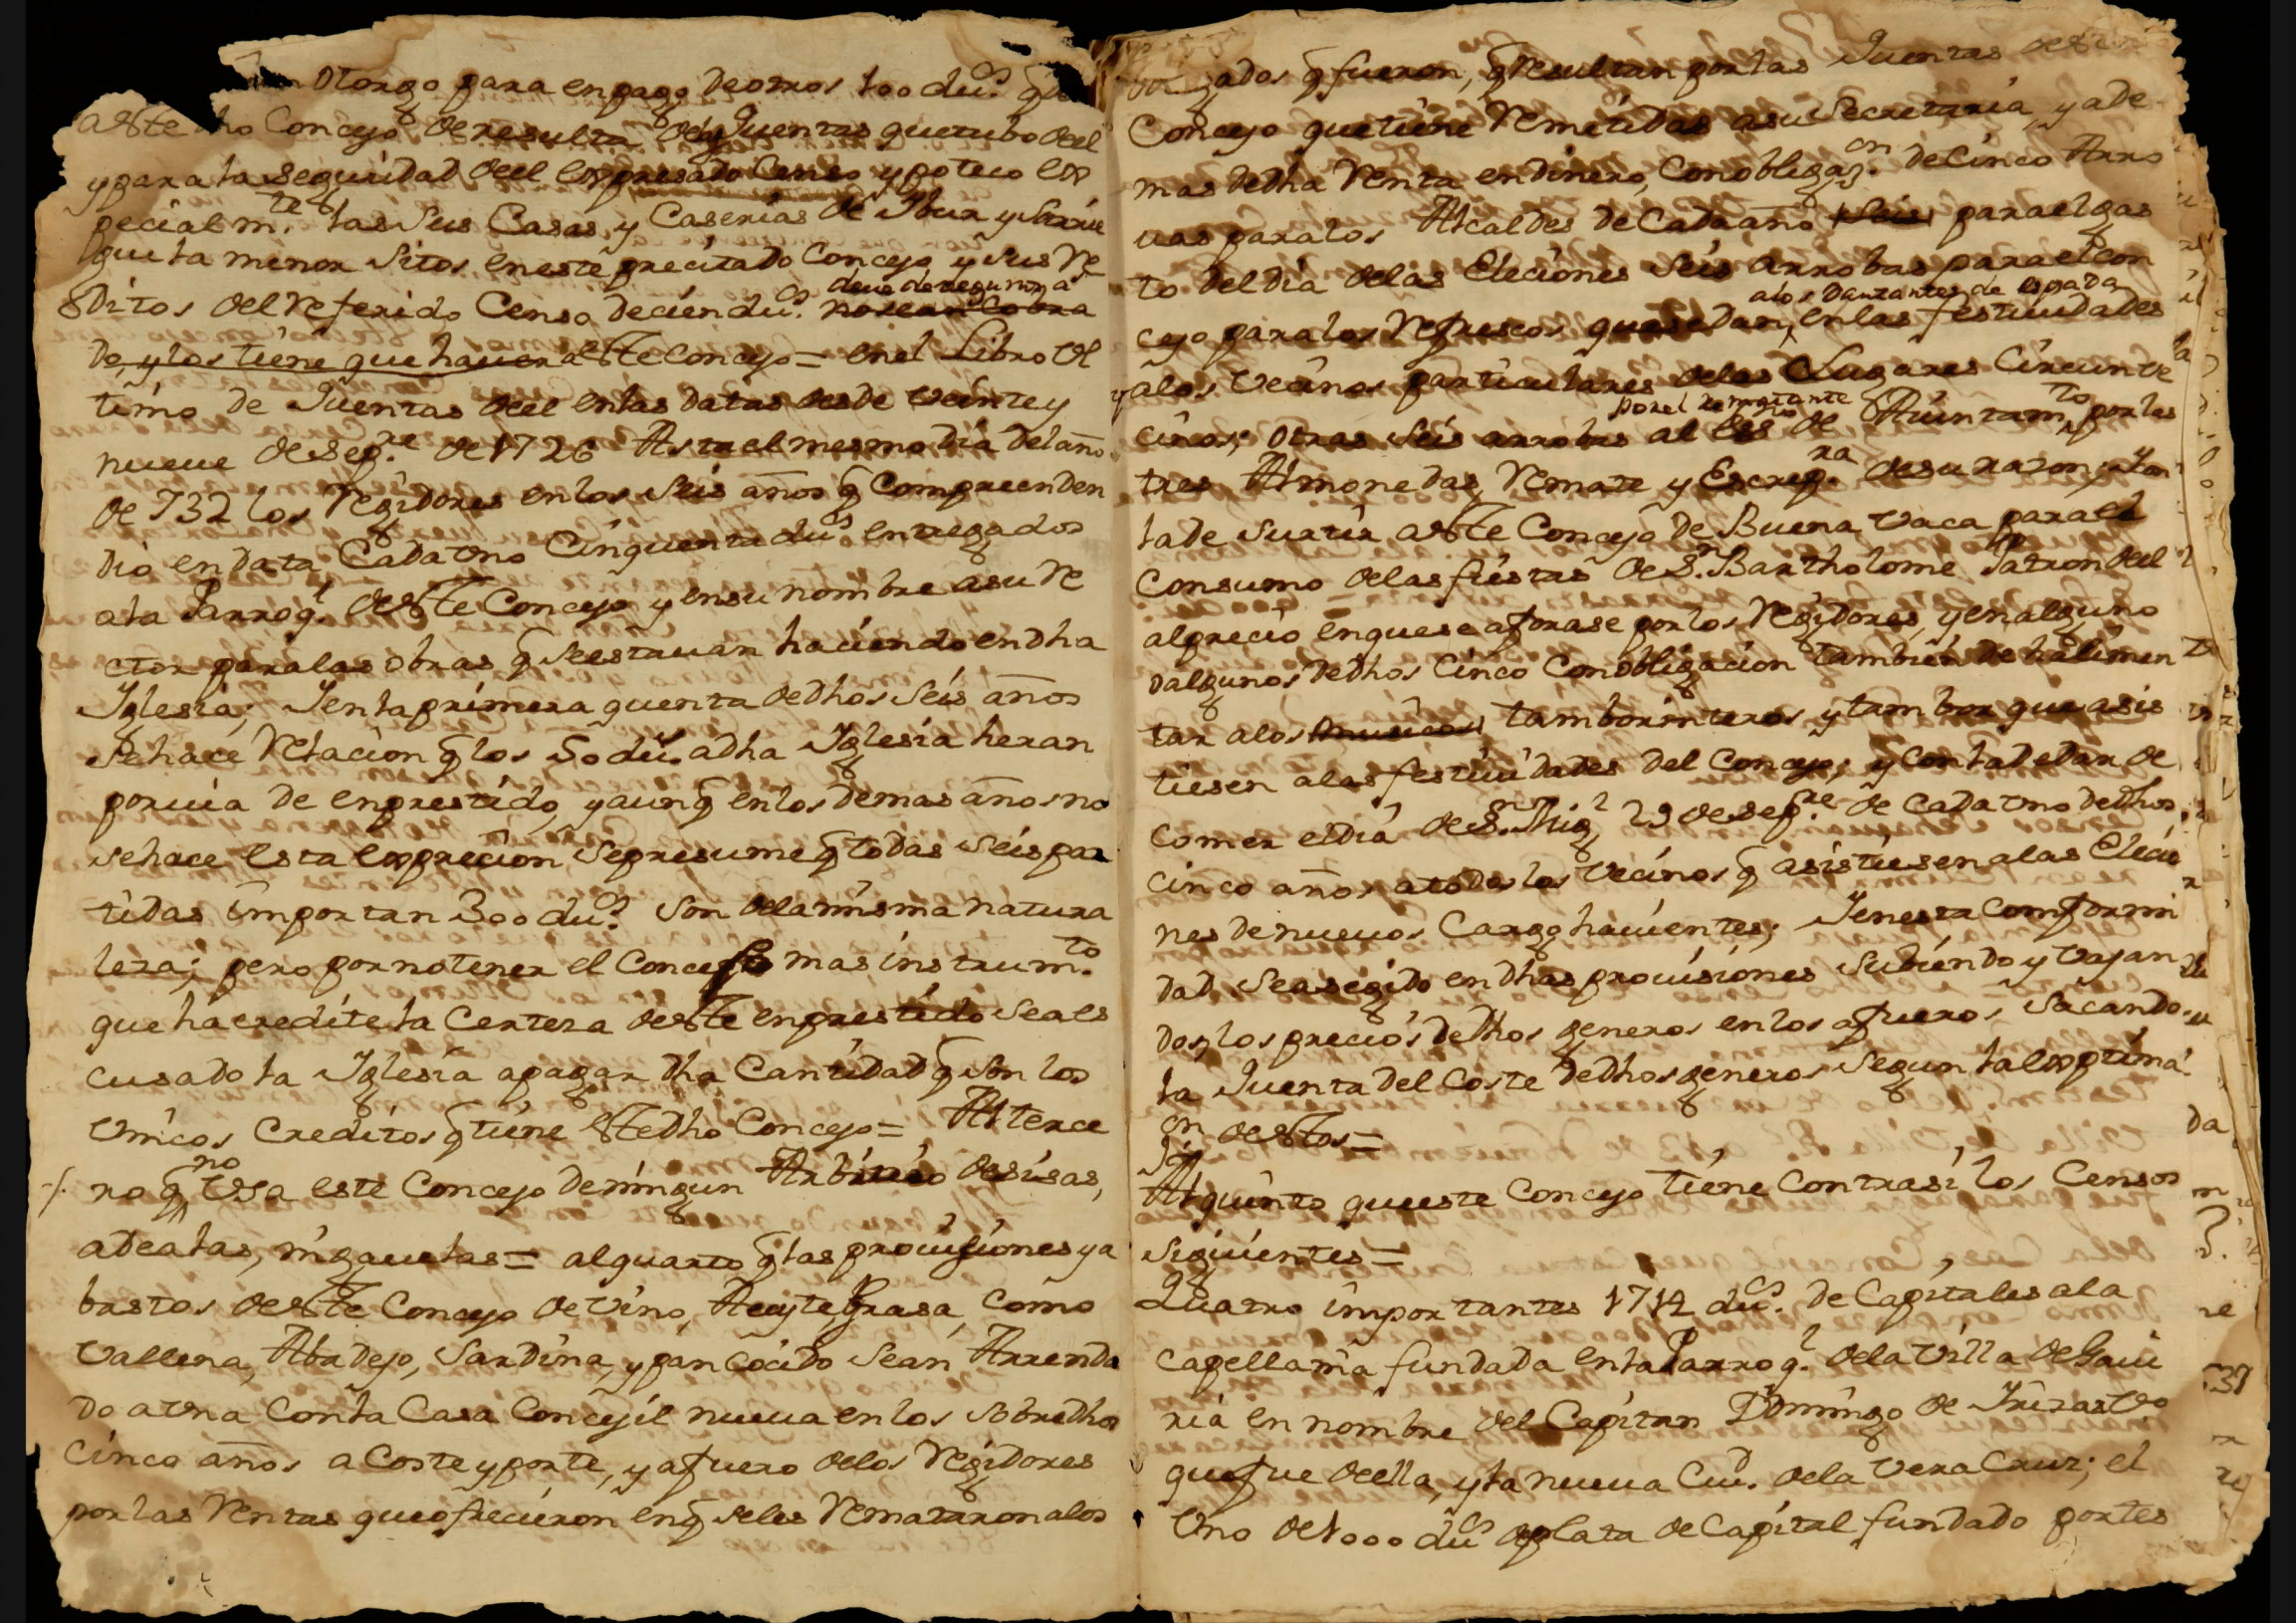 otorgo para en pago de otros 100 du.s q
a este dho Concejo de resulta de las Quentas que tubo deel
y para la seguridad deel expresado Censo ypoteco ex
pecialm.te las sus Casas, y Caserias de Ibur y
guela menor sitos en este precitado Concejo y sus Re
ditos del referido Censo de cien du.s deue de
no sean cobra
do, y los tiene que hauer este Concejo = en el Libro Vl
timo de Quentas deel en las datas desde veinte y
nueue de Sep.re de 1726 Asta el mesmo dia del año
de 732 los Regidores en los seis años q Compreenden
dio en data Cada vno Cinquenta du.s entregados
a la Parroq.l de este Concejo y en su nombre a su Re
ctor para las obras q se estauan haciendo en dha
Iglesia; Y en la primera quenta de dhos seis años
se hace Relacion q los 50 du.s a dha Iglesia heran
por via de enprestido, y aunq en los demas años no
se hace esta exprecion se presume q todas seis par
tidas importan 300 du.s son de la misma natura
leza; pero por no tener el Concejo mas instrum.to
que hacredite la Certeza de este enprestido se a es
cusado la Iglesia a pagar dha Cantidad q son los
vnicos Creditos q tiene este dho Concejo = Al terce
ro q no vsa este Concejo de ningun Arbitrio de sisas,
adealas, ni gauelas = al quarto q las prouisiones y a
bastos de este Concejo de vino, Aceyte, Grasa, como
vallena, Abadejo, Sardina, y pan cocido sean Arrenda
do a vna con la Casa Concejil nueua en los sobredhos
cinco años a Coste y porte, y afuero de los Regidores
por las Rentas que ofrecieron en q se les Remataron a los
gados q fueron, q resultan por las Quentas de
Concejo que tiene Remetidas a su Secretaria, y ade
mas de dha Renta en dinero, con obligaz.on de Cinco Arro
uas para los Alcaldes de Cada año seis para el gas
to del dia de las Eleciones seis arrobas para el Con
cejo para los Refrescos que se dan, a los Danzantes de espada en las festiuidades
y a los vecinos particulares de los Lugares Circunve
cinos; otras seis arrobas al es.no de Aiuntam.to por el rematante por las
tres Almonedas, Remate y Escrip.ra de su razon y con
la de surtir a este Concejo de Buena vaca para el
Consumo de las fiestas de S.n Bartholome Patron deel
al precio en que se aforase por los Regidores, y en alguno
o algunos de dhos Cinco Con obligacion tambien de halimen
tar a los musicos tamborinteros y tambor que asis
tiesen a las festiuidades del Concejo; y con la de dar de
comer el dia de S.n Mig.l 29 de Sep.re de Cada vno de dhos
cinco años a todos los vecinos q asistiesen a las Elecio
nes de nueuos Cargo hauientes; Y en esta comformi
dad se a segido en dhas prouisiones subiendo y vajan
do los precios de dhos generos en los afueros sacando
la Quenta del Coste de dhos generos segun la exptima
on de estos =
Al quinto que este Concejo tiene contra si los Censos
siguientes =
Quatro importantes 1712 du.s de Capitales a la
capellania fundada en la Parroq.l de la Villa de Gaui
ria en nombre del Capitan Domingo de Irizar vo
que fue de ella, y la nueua Ciu.d de la Vera Cruz; el
Vno de 1000 du.s de plata de Capital fundado por tes